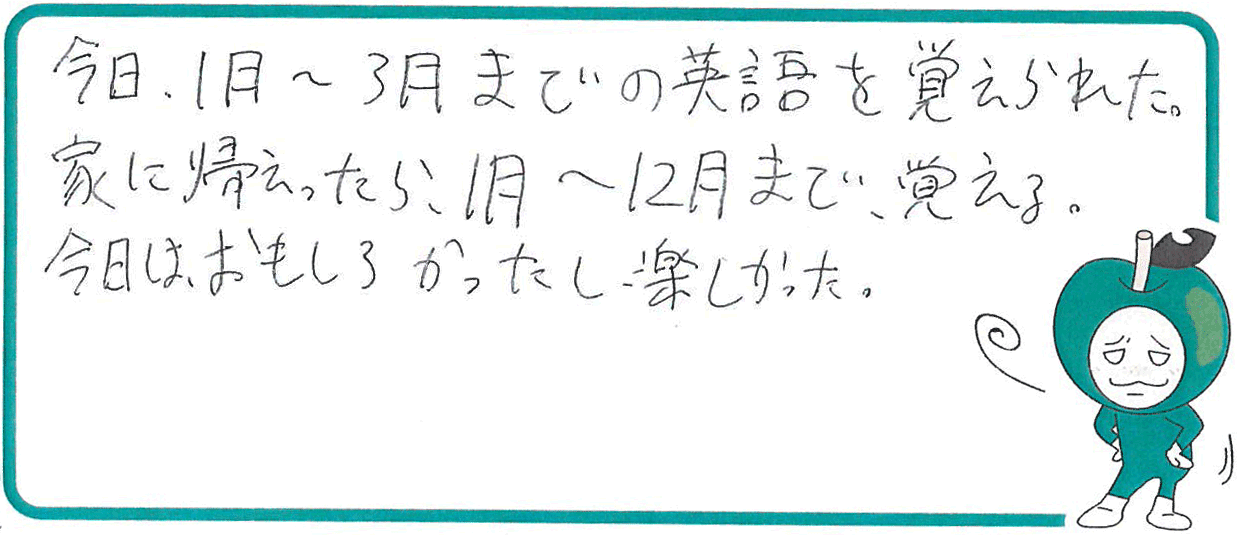 今日、1月～3月までの英語を覚えられた。
家に帰えったら、1月～12月まで、覚える。
今日は、おもしろかったし、楽しかった。